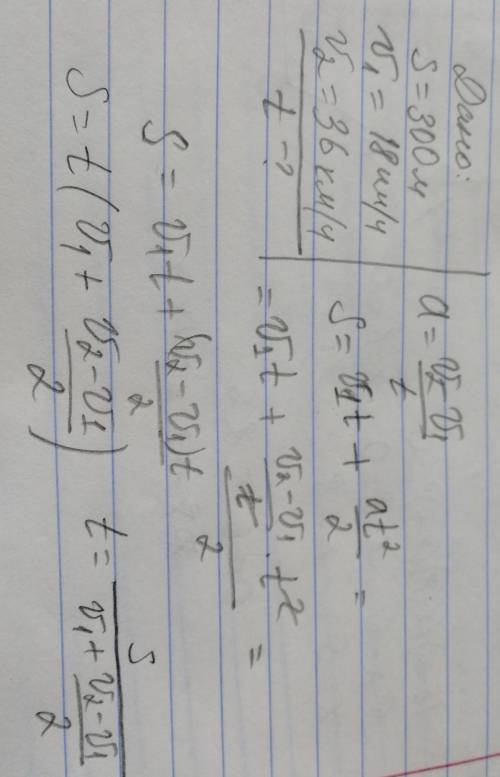 Дано:
S = 300 м
v₁ = 18 км/ч
v₂ = 36 км/ч
t - ?
a = (v₂ - v₁)/t
S = v₁t + at²/2 =
= v₁t + ((v₂ - v₁)/t · t²)/2 =
S = v₁t + (v₂ - v₁)t/2
S = t(v₁ + (v₂ - v₁)/2) t = S/(v₁ + (v₂ - v₁)/2)